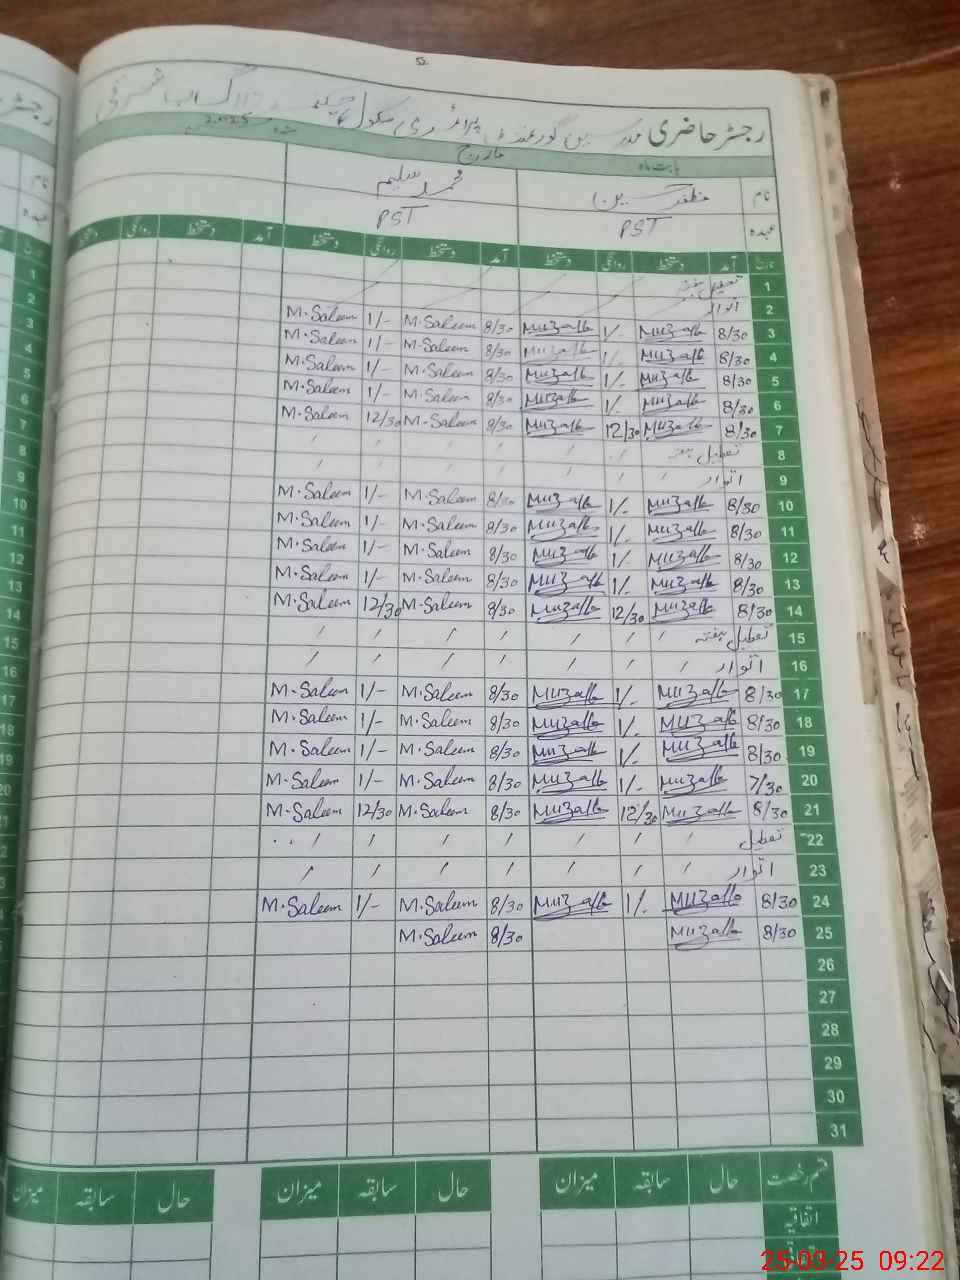 52
رجسٹر حاضری مدرسین گورنمنٹ پرائمری سکول
بابت ماہ مارچ 2025
نام مظفر حسین محمد سلیم
عہدہ PST PST
تاریخ آمد دستخط روانگی دستخط آمد دستخط روانگی دستخط آمد دستخط روانگی دستخط
1 تعطیل ہفتہ
2 اتوار
3 8/30 Muzaffar 1/- Muzaffar 8/30 M.Saleem 1/- M.Saleem
4 8/30 Muzaffar 1/- Muzaffar 8/30 M.Saleem 1/- M.Saleem
5 8/30 Muzaffar 1/- Muzaffar 8/30 M.Saleem 1/- M.Saleem
6 8/30 Muzaffar 1/- Muzaffar 8/30 M.Saleem 1/- M.Saleem
7 8/30 Muzaffar 12/30 Muzaffar 8/30 M.Saleem 12/30 M.Saleem
8 تعطیل ہفتہ
9 اتوار
10 8/30 Muzaffar 1/- Muzaffar 8/30 M.Saleem 1/- M.Saleem
11 8/30 Muzaffar 1/- Muzaffar 8/30 M.Saleem 1/- M.Saleem
12 8/30 Muzaffar 1/- Muzaffar 8/30 M.Saleem 1/- M.Saleem
13 8/30 Muzaffar 1/- Muzaffar 8/30 M.Saleem 1/- M.Saleem
14 8/30 Muzaffar 12/30 Muzaffar 8/30 M.Saleem 12/30 M.Saleem
15 تعطیل ہفتہ
16 اتوار
17 8/30 Muzaffar 1/- Muzaffar 8/30 M.Saleem 1/- M.Saleem
18 8/30 Muzaffar 1/- Muzaffar 8/30 M.Saleem 1/- M.Saleem
19 8/30 Muzaffar 1/- Muzaffar 8/30 M.Saleem 1/- M.Saleem
20 7/30 Muzaffar 1/- Muzaffar 8/30 M.Saleem 1/- M.Saleem
21 8/30 Muzaffar 12/30 Muzaffar 8/30 M.Saleem 12/30 M.Saleem
22 تعطیل
23 اتوار
24 8/30 Muzaffar 1/- Muzaffar 8/30 M.Saleem 1/- M.Saleem
25 8/30 Muzaffar 8/30 M.Saleem
26
27
28
29
30
31
قسم رخصت حال سابقہ میزان حال سابقہ میزان حال سابقہ میزان
اتفاقیہ
25-03-25 09:22